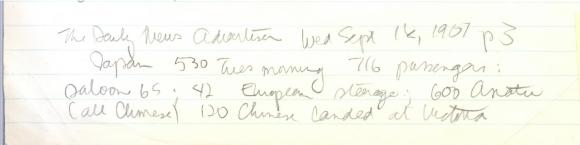 The Daily News Advertiser Wed Sept 18, 1907 p3
Japan 530 Tues morning 716 passengers:
Saloon 65. 42 European steerage; 600 Asiatic
(all Chinese) 120 Chinese landed at Victoria